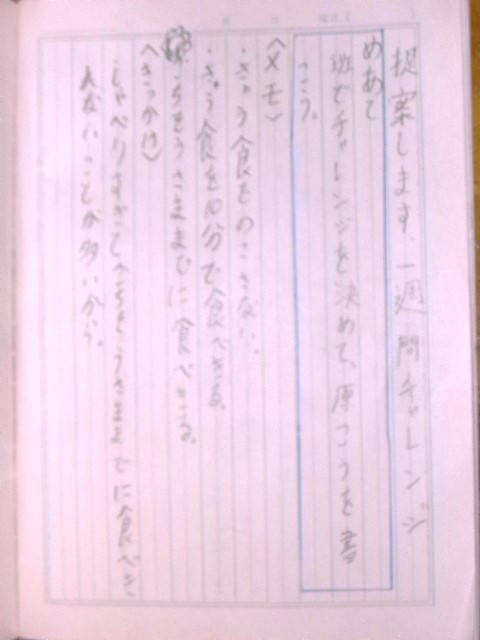 提案します、一週間チャレンジ
めあて
班でチャレンジを決めて、原こうを書
こう。
〈メモ〉
・きゅう食をのこさない。
・きゅう食を10分で食べきる。
・ごちそうさままでに食べきる。
〈きっかけ〉
・しゃべりすぎてごちそうさままでに食べき
れないことが多いから。